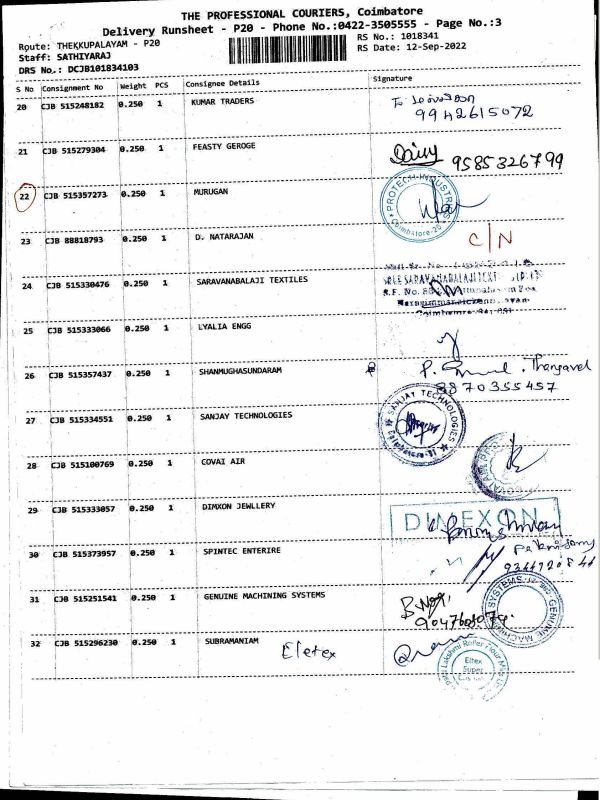 THE PROFESSIONAL COURIERS, Coimbatore
Delivery Runsheet - P20 - Phone No.:0422-3505555 - Page No.:3
Route: THEKKUPALAYAM - P20
RS No.: 1018341
Staff: SATHIYARAJ
RS Date: 12-Sep-2022
DRS No.: DCJB101834103
S No Consignment No Weight PCS Consignee Details Signature
20 CJB 515248182 0.250 1 KUMAR TRADERS
9942615072
21 CJB 515279304 0.250 1 FEASTY GEROGE Daisy 9585326799
22 CJB 515357273 0.250 1 MURUGAN
PROTECH INDUSTRIES
Coimbatore-20
23 CJB 88818793 0.250 1 D. NATARAJAN C/N
24 CJB 515330476 0.250 1 SARAVANABALAJI TEXTILES
25 CJB 515333066 0.250 1 LYALIA ENGG
26 CJB 515357437 0.250 1 SHANMUGHASUNDARAM Thangavel
8870355457
27 CJB 515334551 0.250 1 SANJAY TECHNOLOGIES
SANJAY TECHNOLOGIES
28 CJB 515100769 0.250 1 COVAI AIR
29 CJB 515333057 0.250 1 DIMXON JEWLLERY
DIMEXON
30 CJB 515373957 0.250 1 SPINTEC ENTERIRE
31 CJB 515251541 0.250 1 GENUINE MACHINING SYSTEMS
GENUINE MACHINING SYSTEMS
32 CJB 515296230 0.250 1 SUBRAMANIAM Eletex
Lakshmi Roller Flour Mills
Eltex
Super